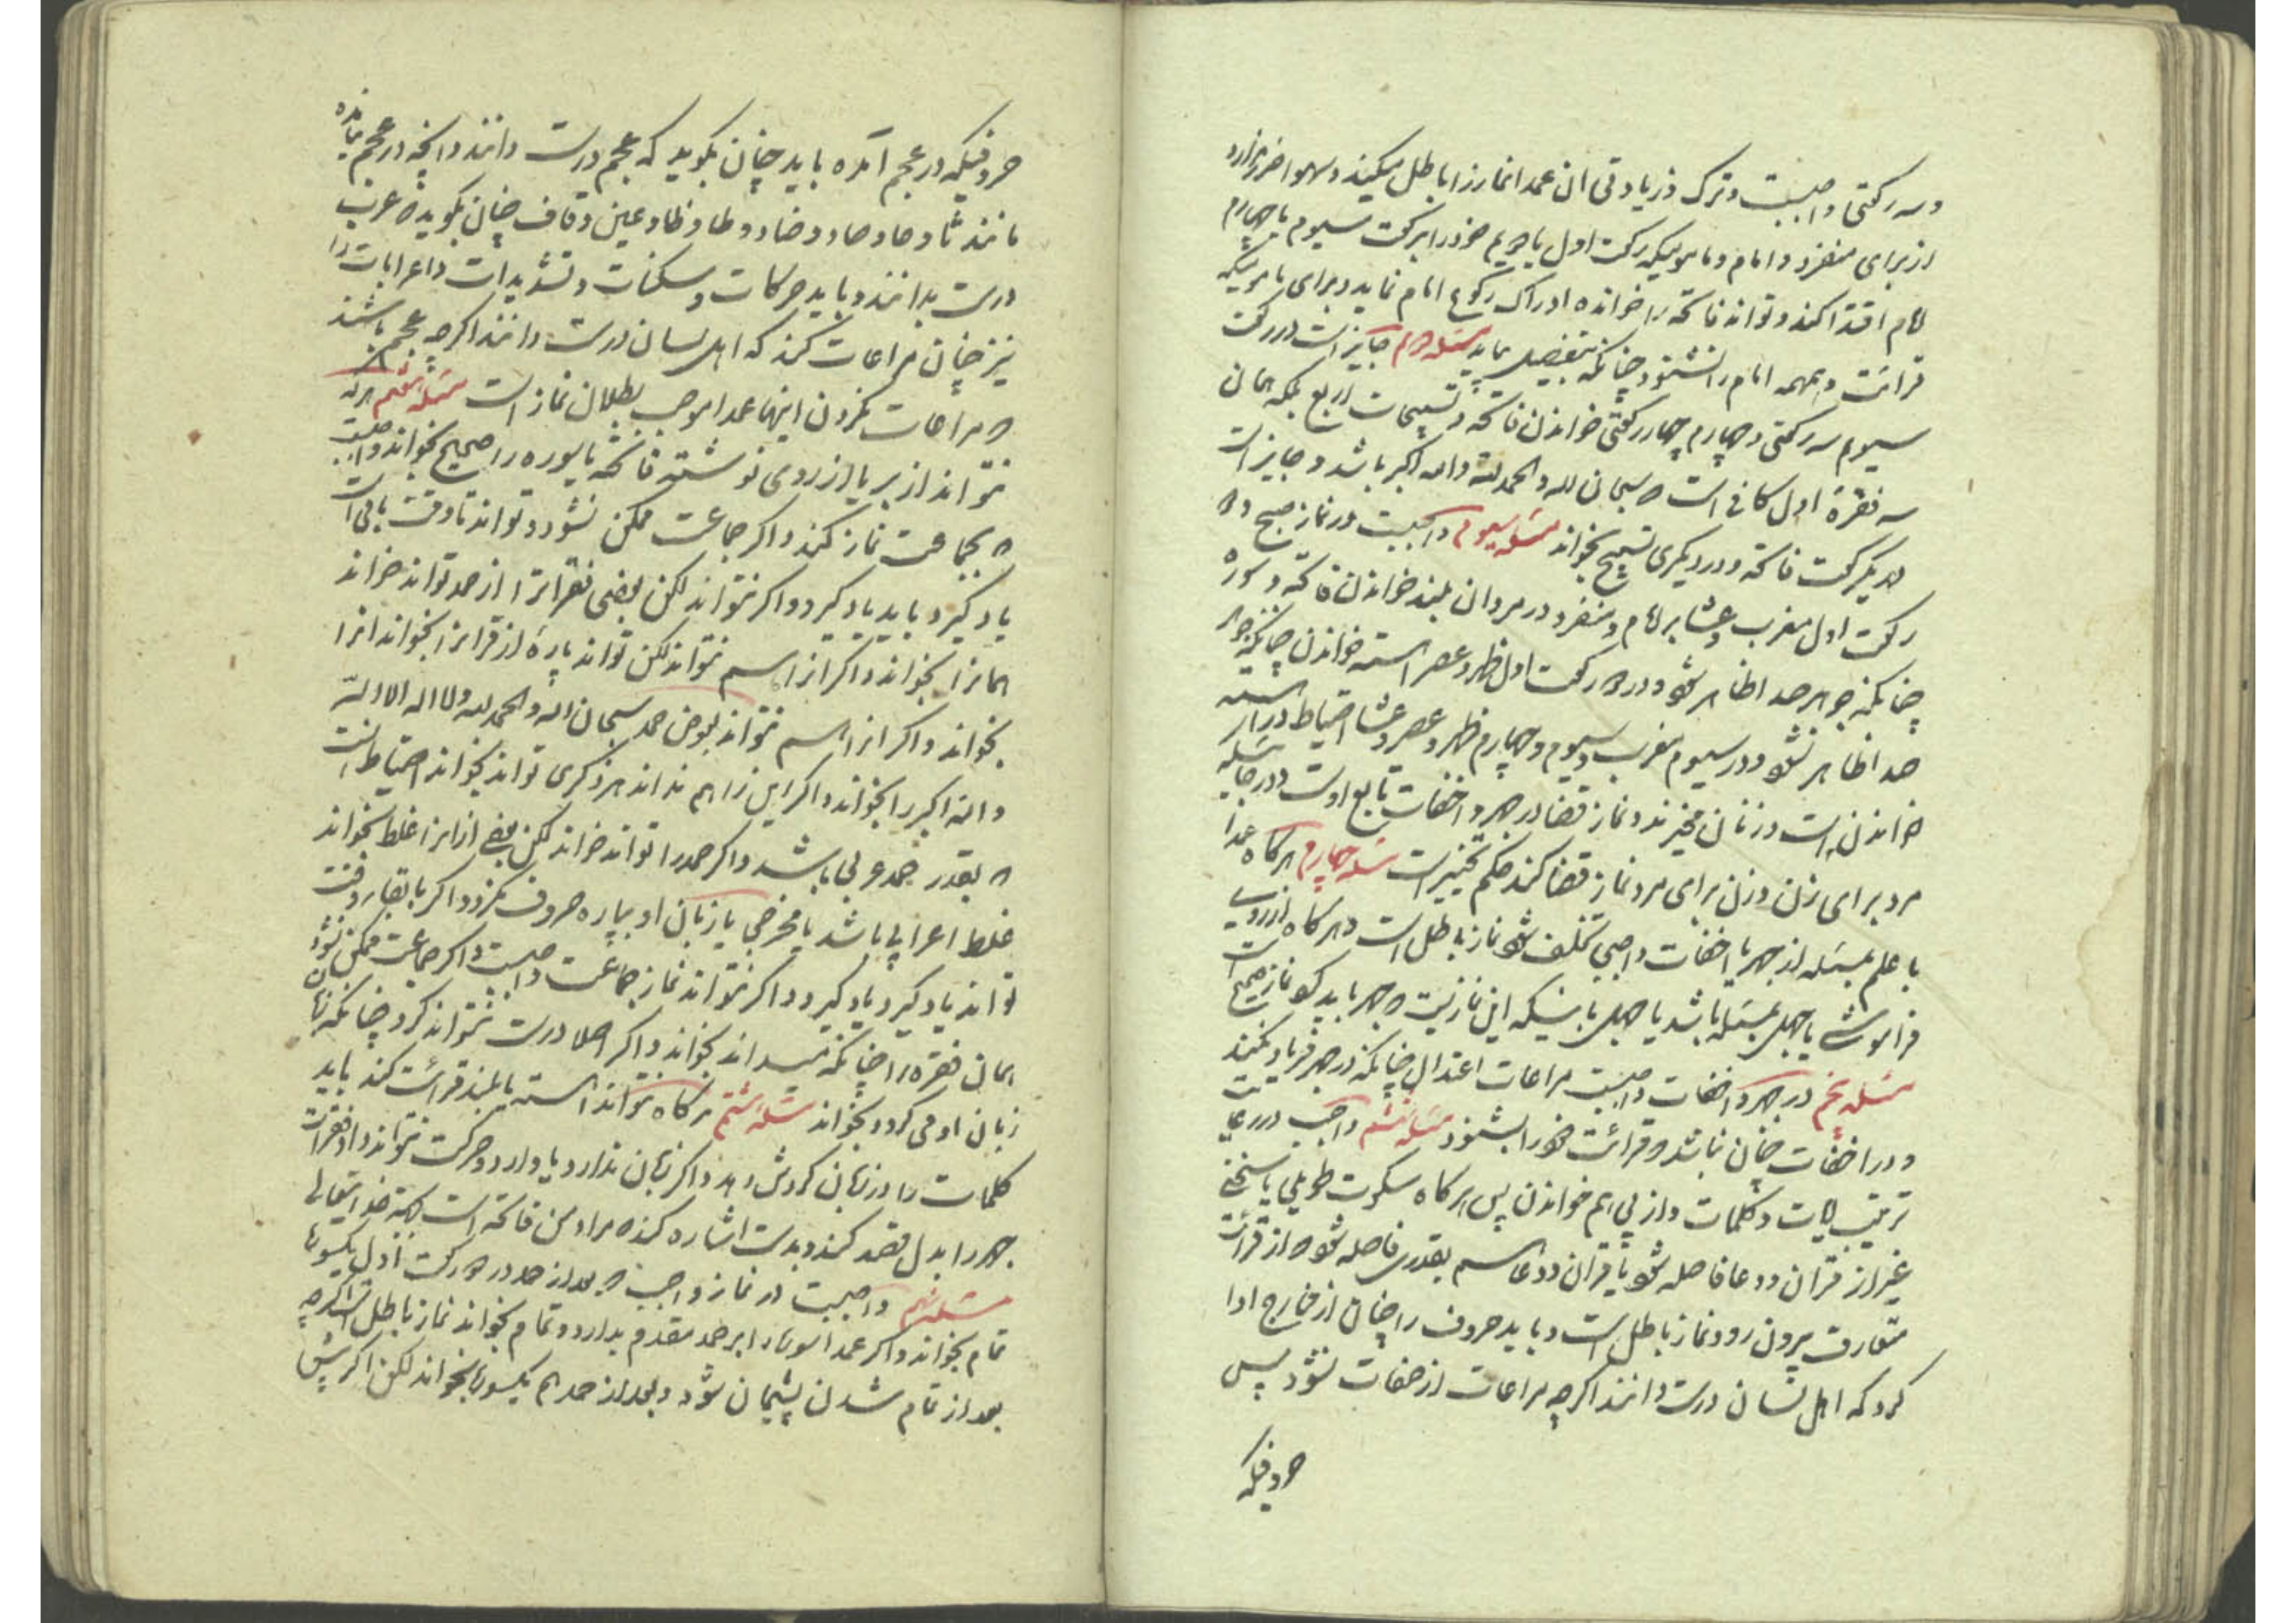 و سه رکعتی واجبست و ترک و زیادتی ان عمدا نماز را باطل میکند و سهوا ضرر ندارد
از برای منفرد و امام و مامومیکه رکعت اول یا دویم خود را برکعت سیوم یا چهارم
امام اقتدا کند و تواند فاتحه را خوانده ادراک رکوع امام نماید و برای مامومیکه
قرائت و همهمه امام را نشنود چنانکه بتفصیل بیاید مسئله دوم جایز است در رکعت
سیوم سه رکعتی و چهارم چهار رکعتی خواندن فاتحه و تسبیحات اربع بلکه همان
سه فقره اول کافی است که سبحان الله و الحمد لله و الله اکبر باشد و جایز است
در یکرکعت فاتحه و در دیگری تسبیح بخواند مسئله سیوم واجبست در نماز صبح و دو
رکعت اول مغرب و عشا بر امام و منفرد در مردان بلند خواندن فاتحه و سوره
چنانکه جوهر صدا ظاهر شود و در دو رکعت اول ظهر و عصر اهسته خواندن چنانکه جوهر
صدا ظاهر نشود و در سیوم مغرب و سیوم و چهارم ظهر و عصر و عشا احتیاط در اهسته
خواندن است و زنان مخیرند و نماز قضا در جهر و اخفات تابع اوست و در جائیکه
مرد برای زن و زن برای مرد نماز قضا کند حکم تخییر است مسئله چهارم هرکاه عمدا
با علم بمسئله از جهر یا اخفات واجبی تخلف شود نماز باطل است و هرکاه از روی
فراموشی یا جهل بمسئله باشد یا جهل باینکه این نمازیست که جهر باید کرد نماز صحیح است
مسئله پنجم در جهر و اخفات واجبست مراعات اعتدال چنانکه در جهر فریاد نکند
و در اخفات چنان نباشد که قرائت خود را نشنود مسئله ششم واجب در رعایت
ترتیب ایات و کلمات و از پی هم خواندن پس هرکاه سکوت طویلی یا سخنی
غیر از قران و دعا فاصله شود یا قران و دعا هم بقدری فاصله شود که از قرائت
متعارف بیرون رود نماز باطل است و باید حروف را چنان از مخارج ادا
کرد که اهل لسان درست دانند اکرچه مراعات از صفات نشود پس
حروفیکه
حروفیکه در عجم امده باید چنان بکوید که عجم درست دانند و انچه در عجم نیامده
مانند ثا و حا و صاد و ضاد و طا و ظا و عین و قاف چنان بکوید که عرب
درست بدانند و باید حرکات و سکنات و تشدیدات و اعرابات را
نیز چنان مراعات کند که اهل لسان درست دانند اکرچه عجم باشند
که مراعات نکردن اینها عمدا موجب بطلان نماز است مسئله هفتم هرکه
نتواند از بر یا از روی نوشته فاتحه یا سوره را صحیح بخواند واجبست
که بجماعت نماز کند و اکر جماعت ممکن نشود و تواند تا وقت باقی است
یاد گیرد باید یاد گیرد و اکر نتواند لکن بعضی فقرات را از حمد تواند خواند
همانرا بخواند و اکر انرا هم نتواند لکن تواند پاره از قرانرا بخواند انرا
بخواند و اکر انرا هم نتواند بعوض حمد سبحان الله و الحمد لله و لا اله الا الله
و الله اکبر را بخواند و اکر این را هم نداند هر ذکری تواند بخواند احتیاط انست
که بقدر حمد عربی باشد و اکر حمد را تواند خواند لکن بعضی از انرا غلط بخواند
غلط اعرابی باشد یا مخرجی یا زبان او بپاره حروف نکردد اکر با بقاء وقت
تواند یاد گیرد یاد گیرد و اکر نتواند نماز جماعت واجبست و اکر جماعت ممکن نشود
همان فقره را چنانکه میداند بخواند و اکر اصلا درست نتواند کرد چنانکه زبان
زبان او می کردد بخواند مسئله هشتم هرکاه نتواند اهسته یا بلند قرائت کند باید
کلمات را در زبان کردش دهد و اکر زبان ندارد یا دارد و حرکت نتواند داد فقرات
جهر را بدل قصد کند و بدست اشاره کند که مراد من فاتحه است البته خدایتعالی
مسئله نهم واجبست در نماز واجب که بعد از حمد در دو رکعت اول یکسوره
تمام بخواند و اکر عمدا سوره را بر حمد مقدم بدارد و تمام بخواند نماز باطل است اکرچه
بعد از تمام شدن پشیمان شود و بعد از حمد هم یکسوره بخواند لکن اکر پیش